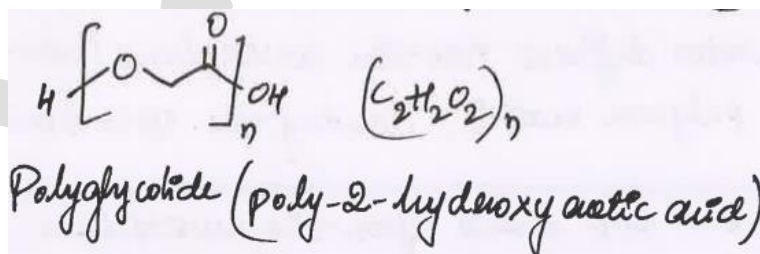 H [ O O ] n OH (C2H2O2)n
Polyglycolide (poly-2-hydroxy acetic acid)